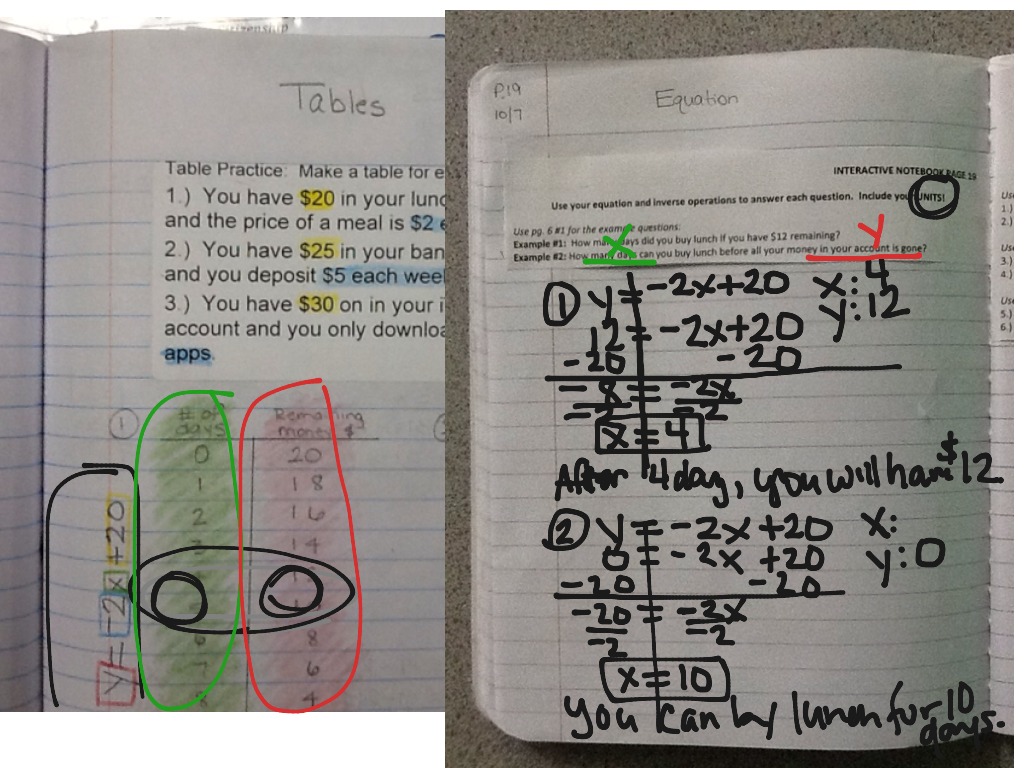 Tables
Table Practice: Make a table for e
1.) You have $20 in your lunc
and the price of a meal is $2 e
2.) You have $25 in your ban
and you deposit $5 each weel
3.) You have $30 on in your i
account and you only downloa
apps.
1
# of days
Remaining money $
0 20
1 18
2 16
3 14
6 8
7 6
8 4
y = -2x+20
P.19
10/7
Equation
INTERACTIVE NOTEBOOK PAGE 19
Use your equation and inverse operations to answer each question. Include your UNITS!
Use pg. 6 #1 for the example questions:
Example #1: How many days did you buy lunch if you have $12 remaining?
Example #2: How many days can you buy lunch before all your money in your account is gone?
X
y
1 y = -2x+20 x: 4
12 = -2x+20 y: 12
-20 -20
-8 = -2x
-2 -2
x = 4
After 4 day, you will have $12
2 y = -2x +20 x:
0 = -2x +20 y: 0
-20 -20
-20 = -2x
-2 -2
x = 10
you can by lunch for 10
days.
Us
1.)
2.)
3.)
4.)
Us
5.)
6.)